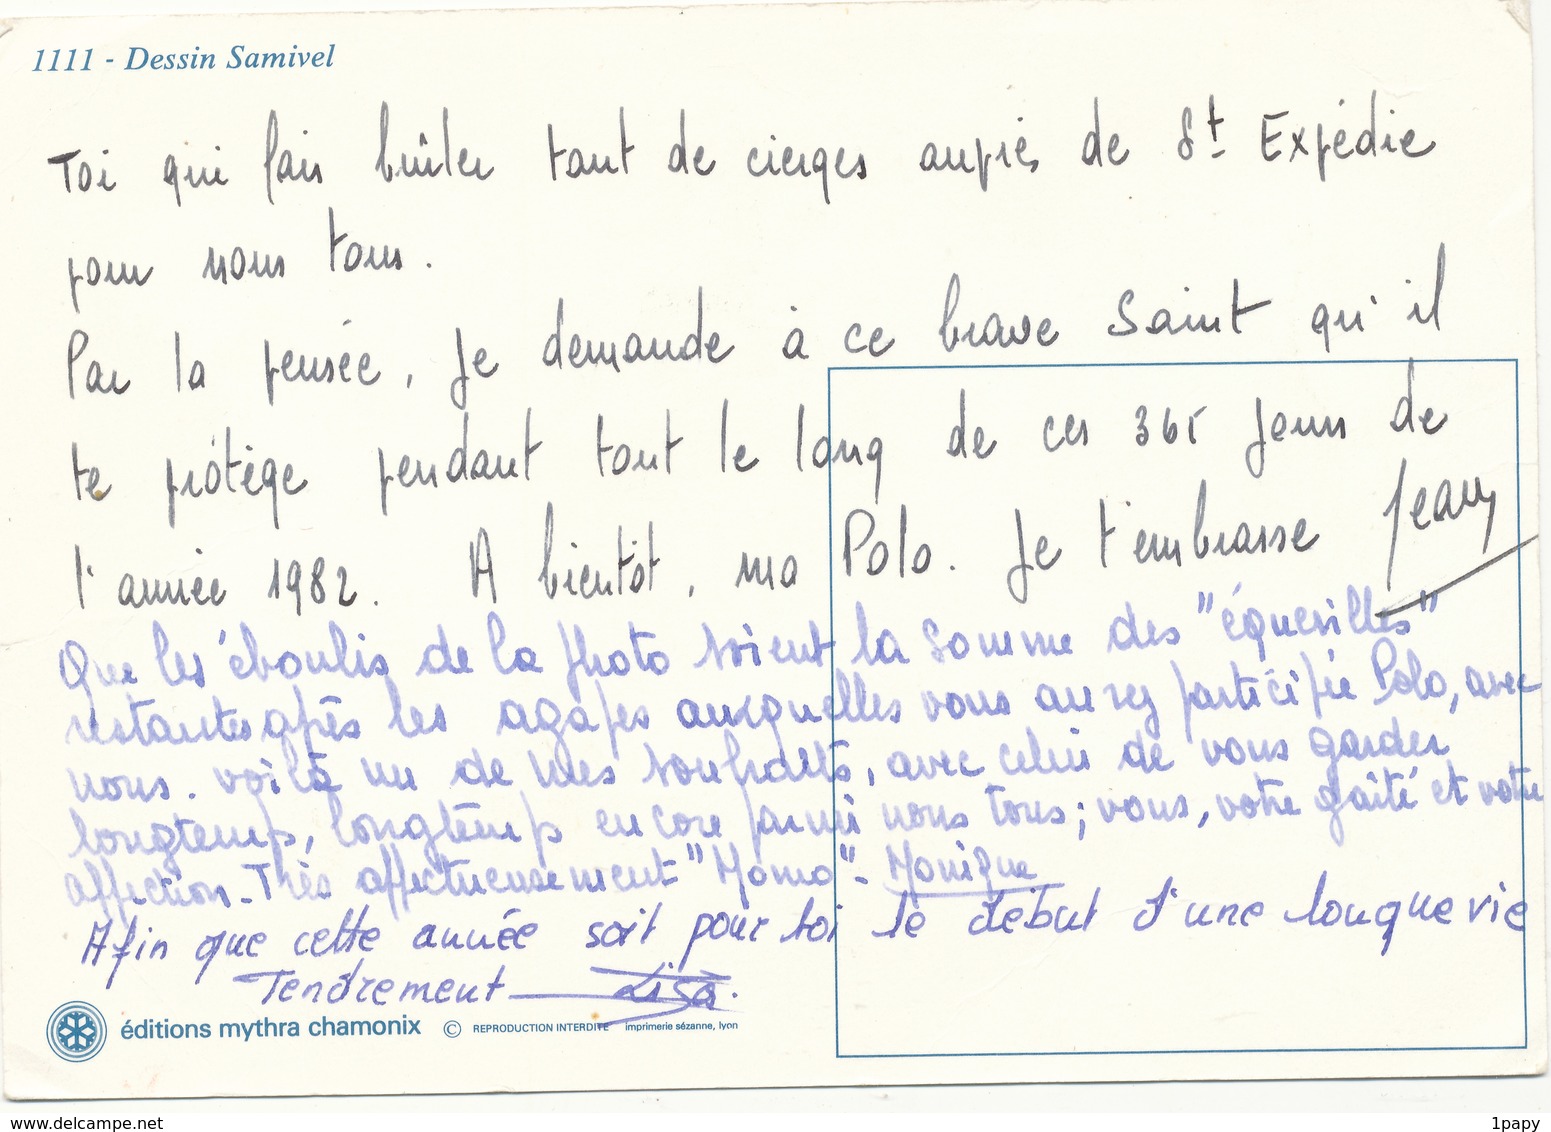 1111 - Dessin Samivel
Toi qui fais brûler tant de cierges auprès de St Expédie
pour nous tous.
Par la pensée, je demande à ce brave Saint qu'il
te protège pendant tout le long de ces 365 jours de
l'année 1982. A bientôt, ma Polo. Je t'embrasse Jeany
Que les éboulis de la photo soient la somme des "équevilles"
restantes après les agapes auxquelles vous aurez participée Polo, avec
nous. Voilà un de mes souhaits, avec celui de vous garder
longtemps, longtemps encore parmi nous tous; vous, votre gaîté et votre
affection - Très affectueusement "Momo" - Monique
Afin que cette année soit pour toi le début d'une longue vie
Tendrement Lisa.
éditions mythra chamonix © REPRODUCTION INTERDITE imprimerie sézanne, lyon
www.delcampe.net
1papy